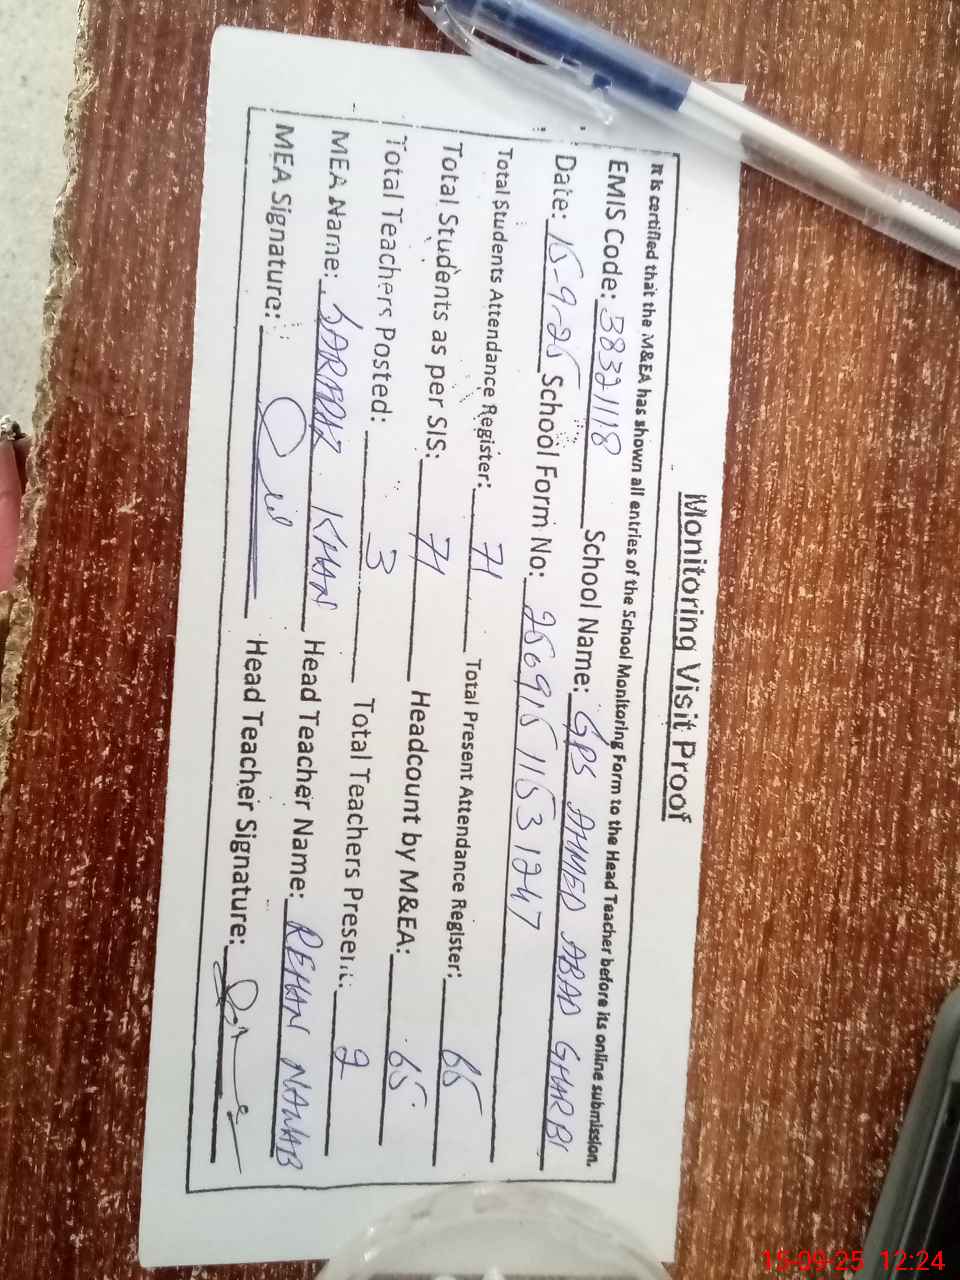 Monitoring Visit Proof
It is certified that the M&EA has shown all entries of the School Monitoring Form to the Head Teacher before its online submission.
EMIS Code: 38321118 School Name: GPS AHMED ABAD GHARBI
Date: 15-9-25 School Form No: 25091511531247
Total Students Attendance Register: 71 Total Present Attendance Register: 65
Total Students as per SIS: 71 Headcount by M&EA: 65
Total Teachers Posted: 3 Total Teachers Present: 2
MEA Name: SARFRAZ KHAN Head Teacher Name: REHAN NAWAB
MEA Signature: Head Teacher Signature:
15-09-25 12:24